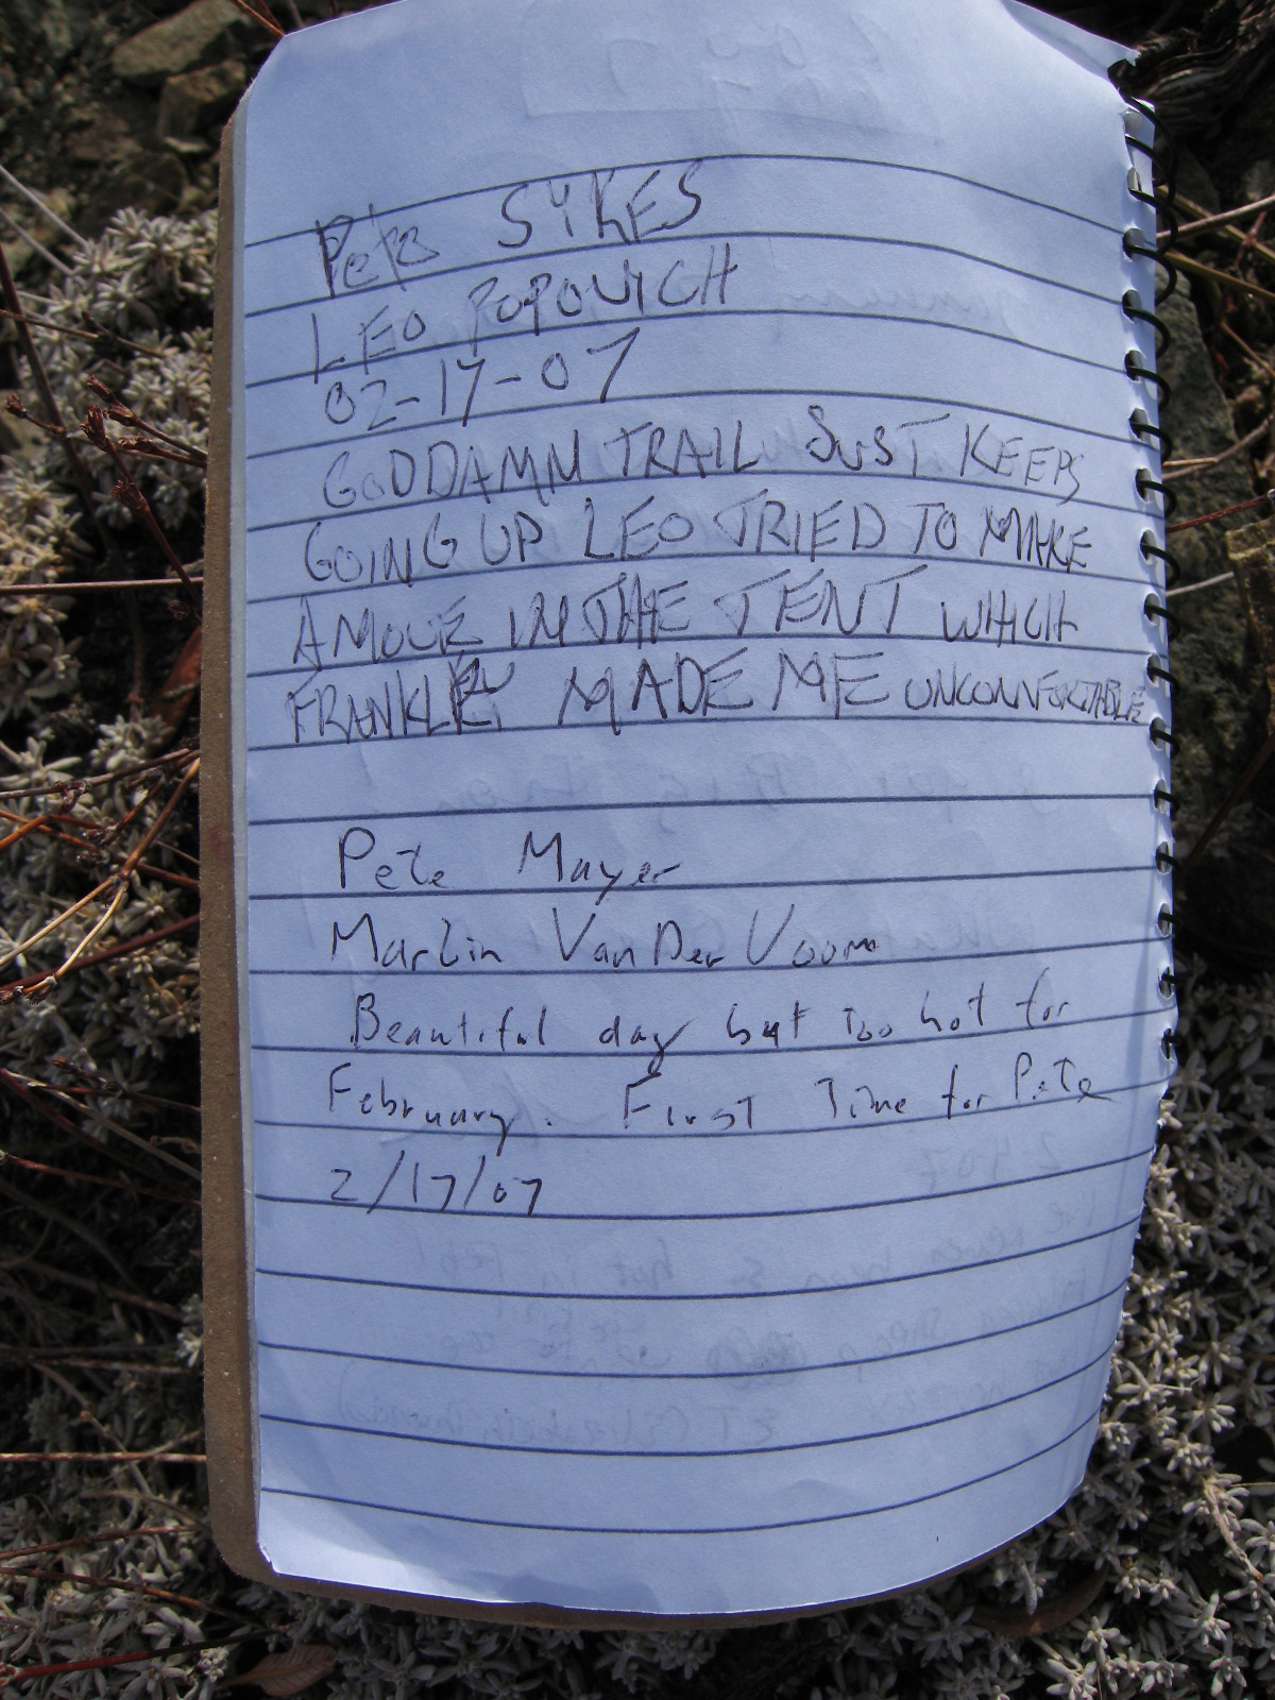 Pete SYKES
LEO POPOVICH
02-17-07
GODDAMN TRAIL JUST KEEPS
GOING UP LEO TRIED TO MAKE
A MOVE IN THE TENT WHICH
FRANKLY MADE ME UNCONNFORTABLE
Pete Mayer
Marlin VanDer Voorn
Beautiful day but Too hot for
February. First Time for Pete
2/17/07